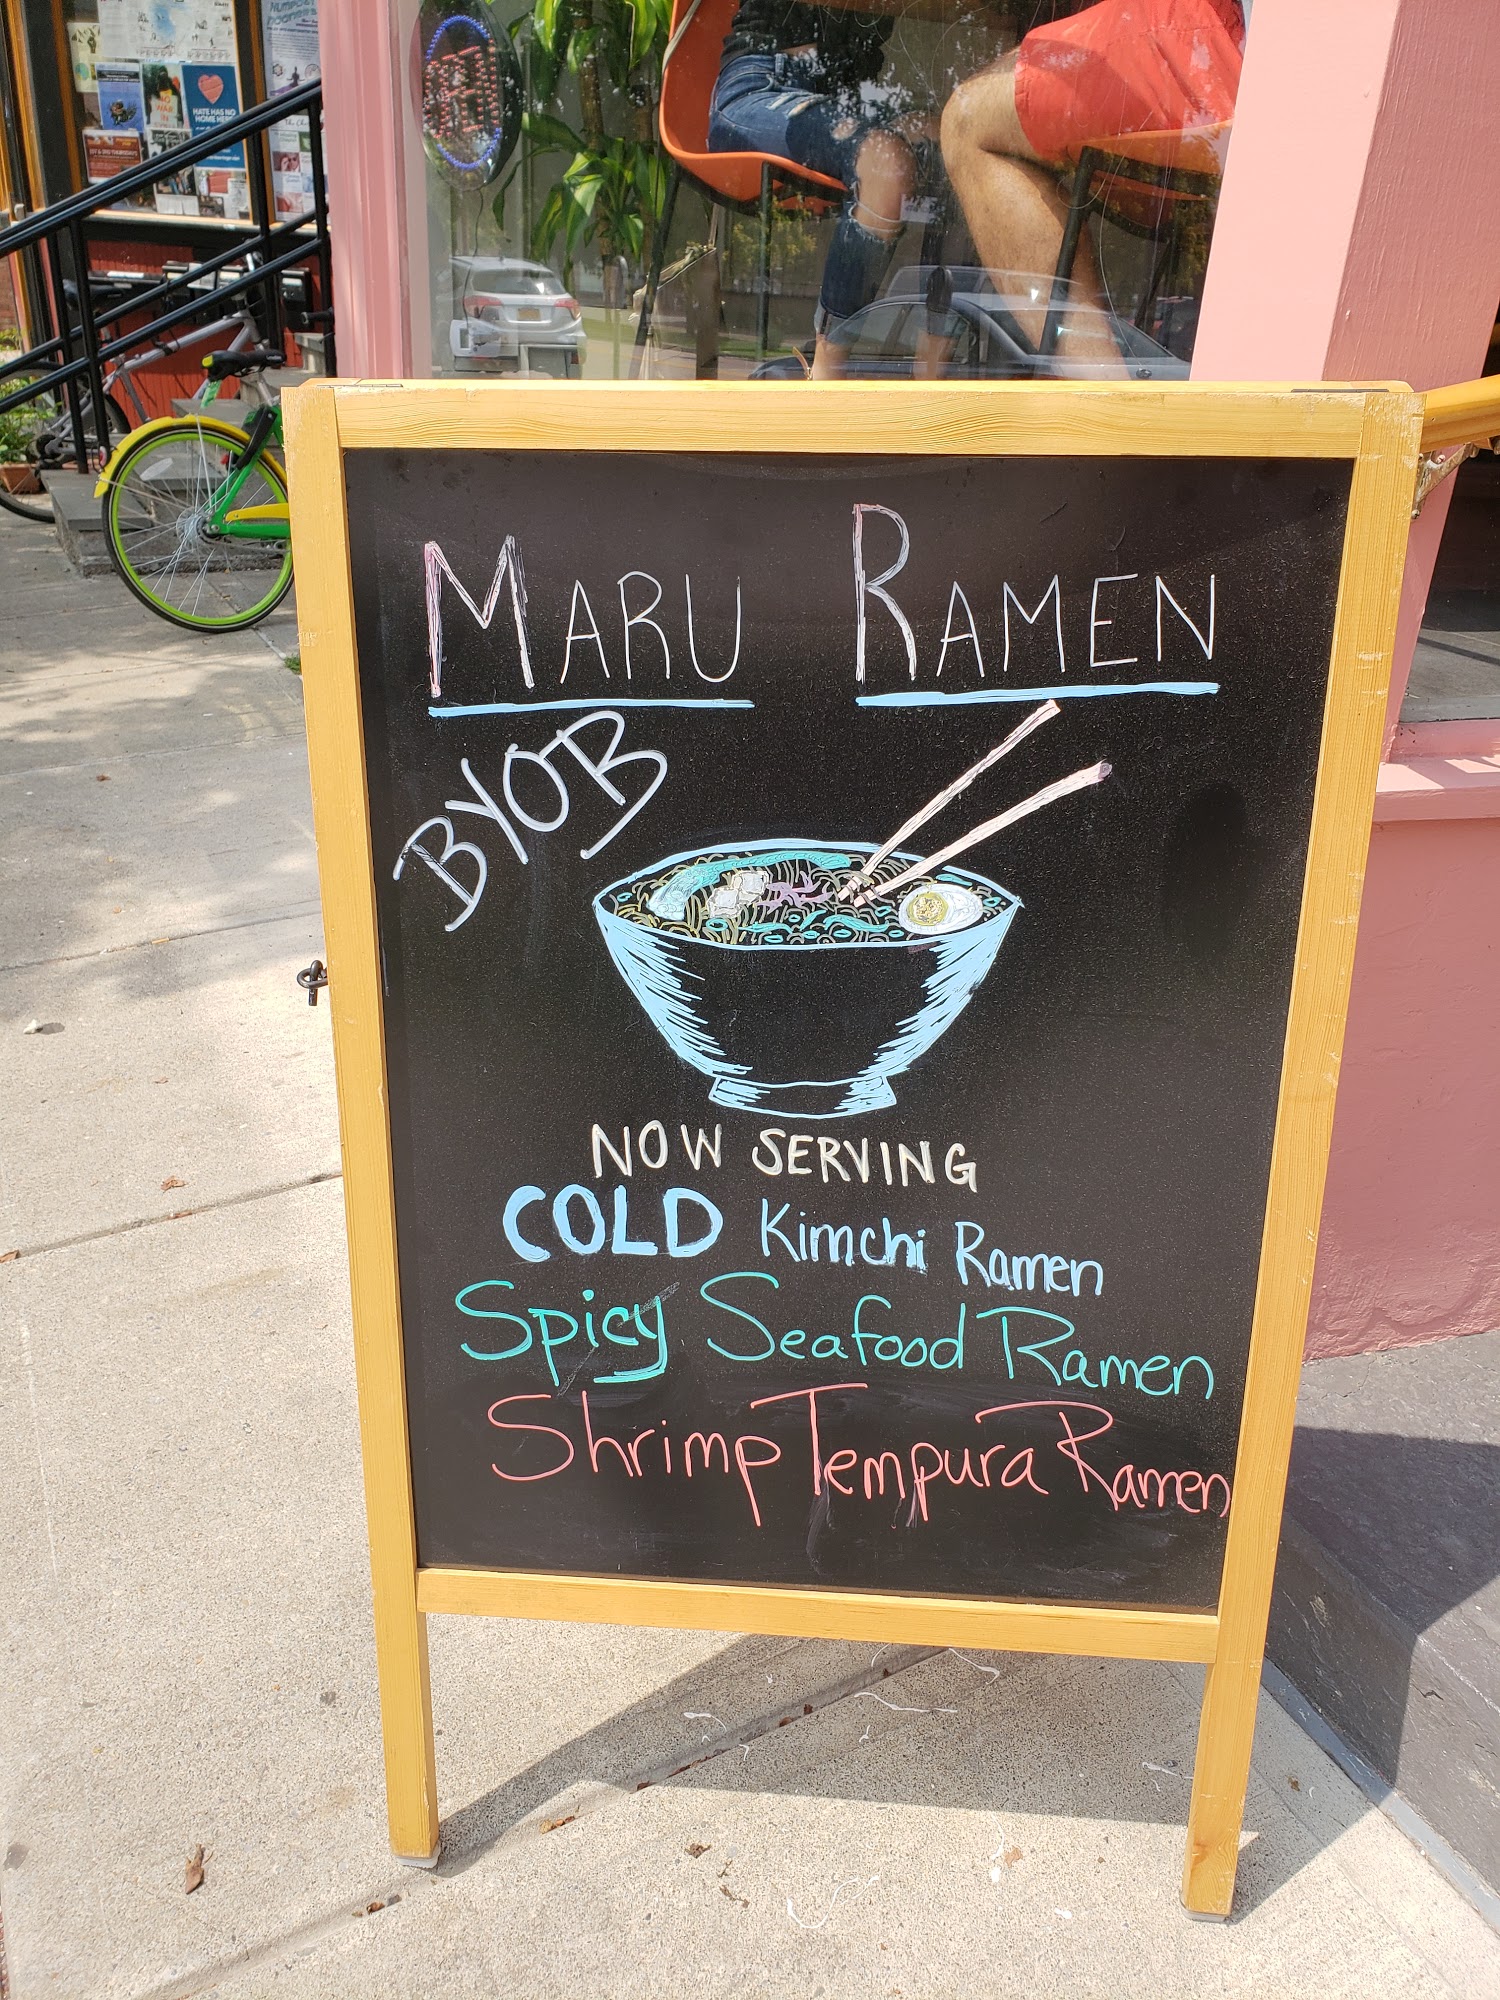 HATE HAS NO
HOME HERE
MARU RAMEN
BYOB
NOW SERVING
COLD Kimchi Ramen
Spicy Seafood Ramen
Shrimp Tempura Ramen